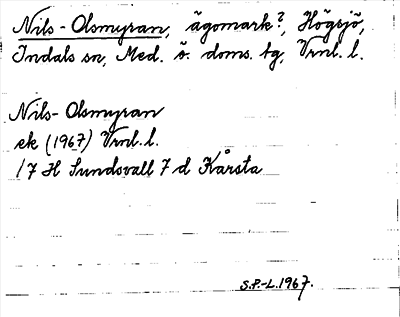 Nils-Olsmyran, ägomark?, Högsjö,
Indals sn, Med. ö. doms. tg, Vrnl. l.
Nils-Olsmyran
ek (1967) Vrnl. l.
17 H Sundsvall 7 d Kårsta
S.P.-L. 1967.